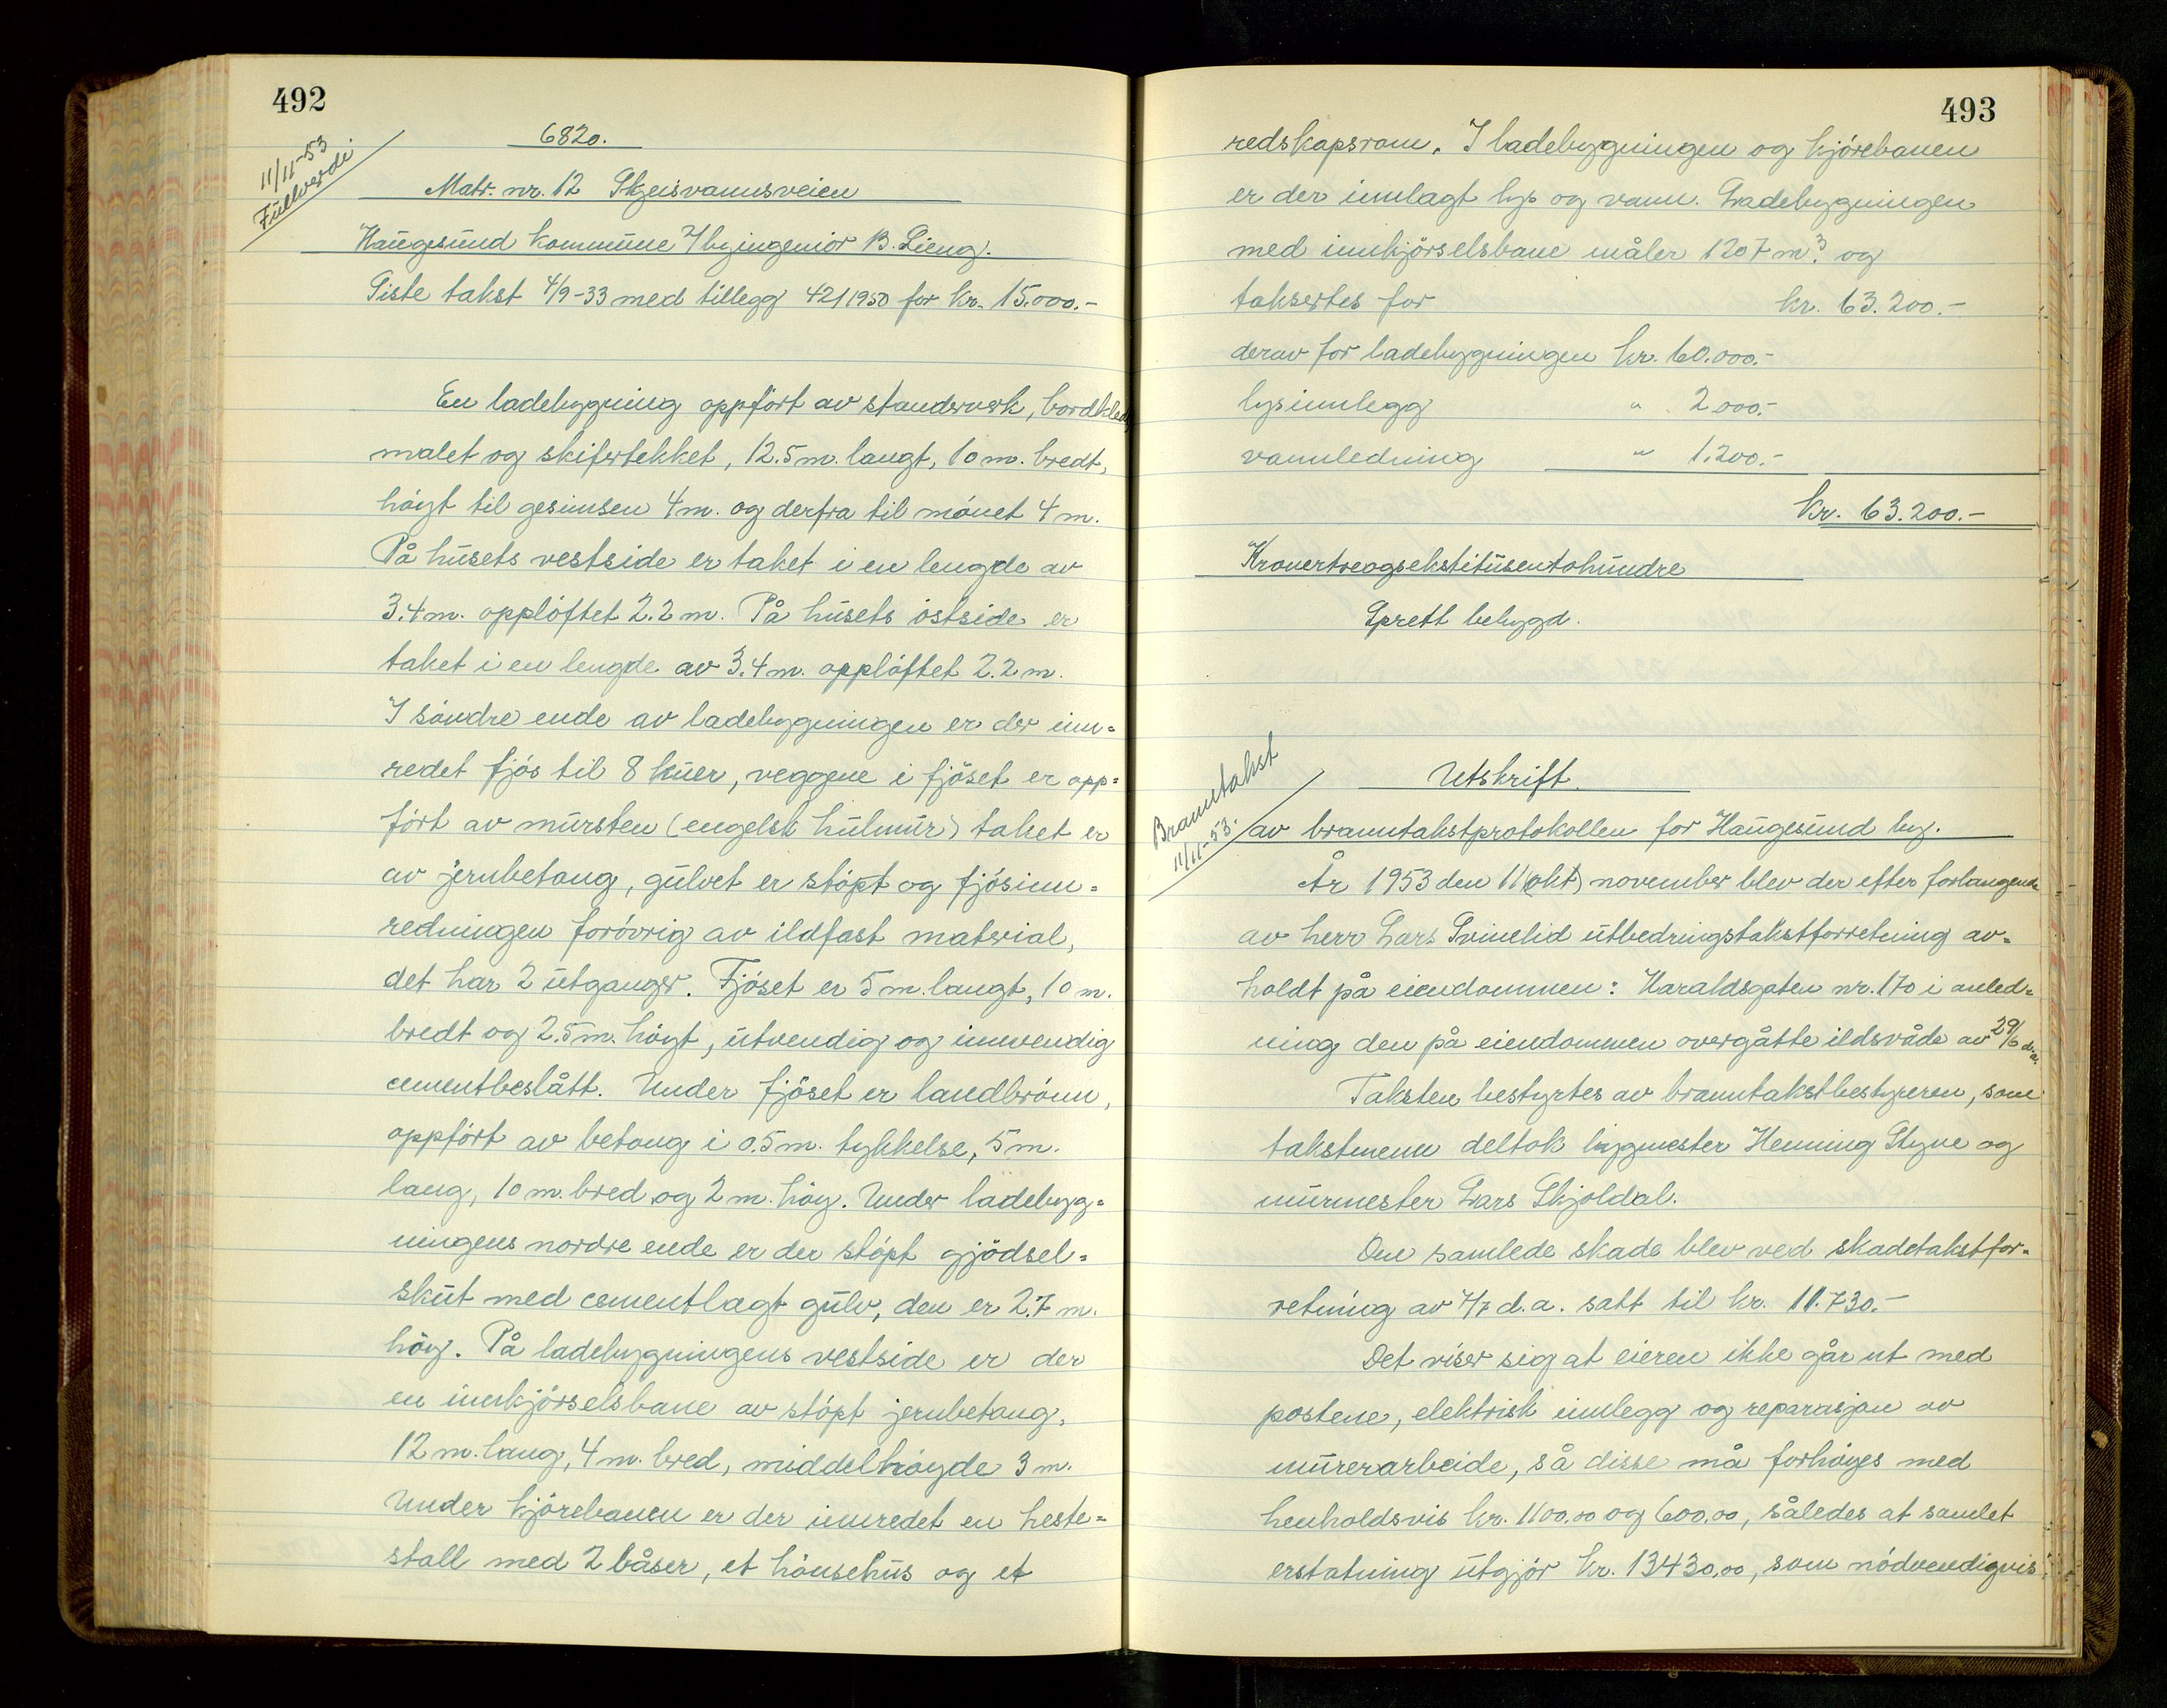 492
11/11-53
Fullverdi
6820.
Matr. nr. 12 Skeisvannsveien
Haugesund kommune v/ byingeniör B. Lieng.
Siste takst 4/9-33 med tillegg 421 1950 for kr. 15.000.-
En ladebygning oppfört av standerverk, bordkledd,
malet og skifertekket, 12.5 m. langt, 10 m. bredt,
höigt til gesimsen 4 m. og derfra til mönet 4 m.
På husets vestside er taket i en lengde av
3.4 m. opplöftet 2.2 m. På husets östside er
taket i en lengde av 3.4 m. opplöftet 2.2 m.
I söndre ende av ladebygningen er der inn=
redet fjös til 8 kuer, veggene i fjöset er opp=
fört av mursten (engelsk hulmur) taket er
av jernbetong, gulvet er stöpt og fjösinn=
redningen forövrig av ildfast material,
det har 2 utganger. Fjöset er 5 m. langt, 10 m.
bredt og 2.5 m. höyt, utvendig og innvendig
cementbeslått. Under fjöset er landbrönn,
oppfört av betong i 0.5 m. tykkelse, 5 m.
lang, 10 m. bred og 2 m. höy. Under ladebyg=
ningens nordre ende er der stöpt gjödsel=
skut med cementlagt gulv, den er 2.7 m.
höy. På ladebygningens vestside er der
en innkjörselsbane av stöpt jernbetong,
12 m. lang, 4 m. bred, middelhöyde 3 m.
Under kjörebanen er der innredet en heste=
stall med 2 båser, et hönsehus og et
493
redskapsrom. I ladebygningen og kjörebanen
er der innlagt lys og vann. Ladebygningen
med innkjörselsbane måler 1207 m³. og
taksertes for kr. 63.200.-
derav for ladebygningen kr. 60.000.-
lysinnlegg " 2.000.-
vannledning " 1.200.-
kr. 63.200.-
Kronertreogsekstitusentohundre
Sprett bebygd.
Branntakst
11/11-53.
Utskrift.
av branntakstprotokollen for Haugesund by.
År 1953 den 11 (okt) november blev der efter forlangende
av herr Lars Tvinelid utbedringstakstforretning av=
holdt på eiendommen: Haraldsgaten nr. 170 i anled=
ning den på eiendommen overgåtte ildsvåde av 29/6 d.a.
Taksten bestyrtes av branntakstbestyreren, som
takstmenn deltok byggmester Henning Styve og
murmester Lars Skjoldal.
Den samlede skade blev ved skadetakstfor=
retning av 7/7 d.a. satt til kr. 11.730.-
Det viser sig at eieren ikke går ut med
postene, elektrisk innlegg og reparasjon av
murerarbeide, så disse må forhöyes med
henholdsvis kr. 1100,00 og 600,00, således at samlet
erstatning utgjör kr. 13430,00, som nödvendigvis